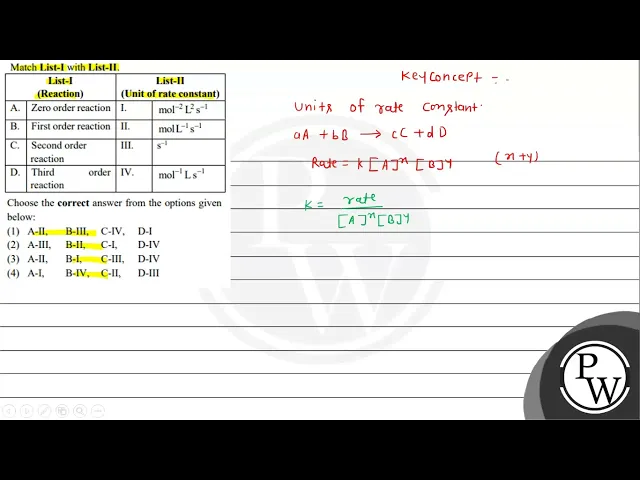 Match List-I with List-II.
List-I
(Reaction)
List-II
(Unit of rate constant)
A. Zero order reaction I. mol⁻² L² s⁻¹
B. First order reaction II. mol L⁻¹ s⁻¹
C. Second order reaction III. s⁻¹
D. Third order reaction IV. mol⁻¹ L s⁻¹
Choose the correct answer from the options given
below:
(1) A-II, B-III, C-IV, D-I
(2) A-III, B-II, C-I, D-IV
(3) A-II, B-I, C-III, D-IV
(4) A-I, B-IV, C-II, D-III
Key Concept :-
Units of rate constant.
aA + bB → cC + dD
Rate = K [A]ˣ [B]ʸ (x+y)
K = rate / [A]ˣ [B]ʸ
PW